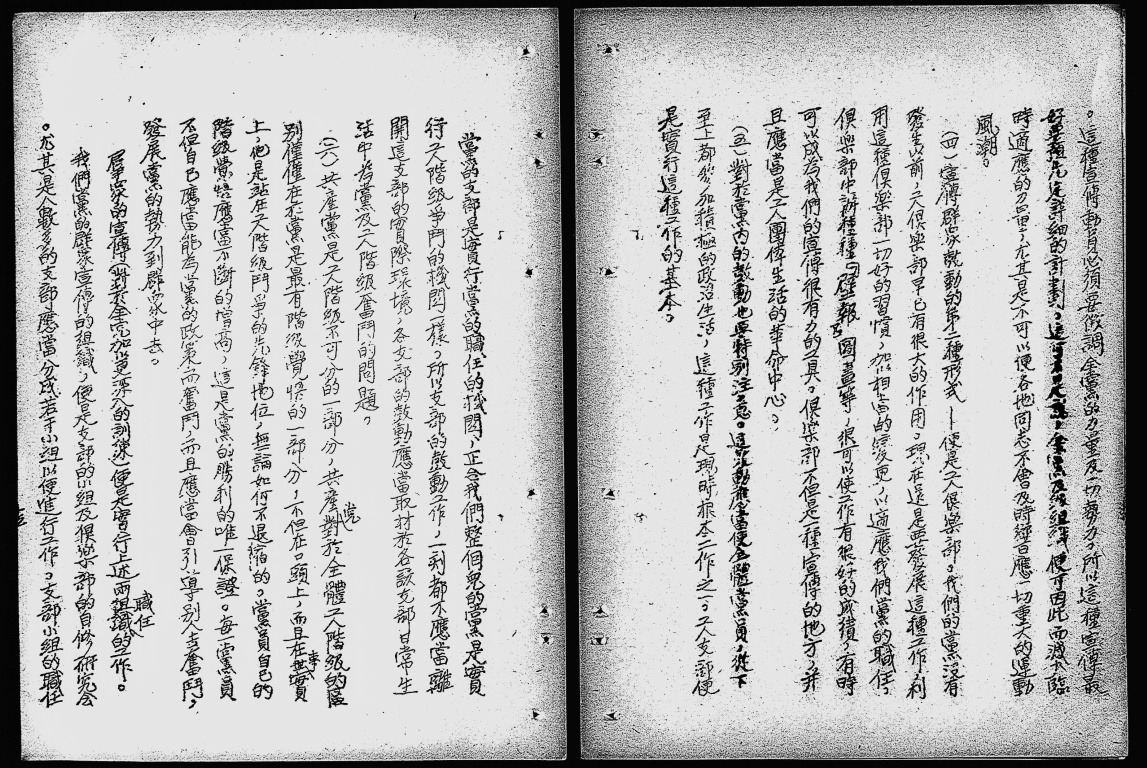 。這種宣傳動員必須要強調全黨的力量及一切勢力，所以這種宣傳最
好要預先定詳細的計劃，這
時適應的力量；尤其是不可以使各地同志不會及時響應一切重大的運動
風潮。
（四）宣傳群眾鼓動的第二種形式——便是工人俱樂部。我們的黨沒有
發生以前，工人俱樂部早已有很大的作用。現在還是要發展這種工作，利
用這種俱樂部一切好的習慣，加以相當的變更，以適應我們黨的職任，
俱樂部中辦種種壁報，圖畫等，很可以使工作有很好的成績，有時
可以成為我們的宣傳很有力的工具。俱樂部不但是一種宣傳的地方，并
且應當是工人團體生活的革命中心。
（五）對於黨內的鼓動也要特別注意。這鼓動應當使全體黨員，從下
至上都參加積極的政治生活，這種工作是現時根本工作之一。工人支部便
是實行這種工作的基本。
當黨的支部是實行黨的職任的機關，正合我們整個兒的黨是實
行工人階級爭鬥的機關一樣，所以支部的鼓動工作，一刻都不應當離
開這支部的實際環境，各支部的鼓動應當取材於各該支部日常生
活中為黨及工人階級奮鬥的問題。
（六）共產黨是工人階級不可分的一部分，共產黨對於全體工人階級的區
別僅僅在於黨是最有階級覺悟的一部分，不但在口頭上，而且在事實
上，他是站在工人階級鬥爭的先鋒地位，無論如何不退縮的。黨員自己的
階級覺悟應當不斷的增高，這是黨的勝利的唯一保證。每一黨員
不但自己應當能為黨的政策而奮鬥，而且應當會引導別人去奮鬥，
發展黨的勢力到群眾中去。
群眾的宣傳對於全黨加以更深入的訓練，便是實行上述職任而組織的工作。
我們黨的群眾宣傳的組織，便是支部的小組及俱樂部的自修研究會
。尤其是人數多的支部應當分成若干小組以便進行工作。支部小組的職任